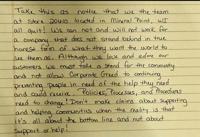 Take this as notice that we the team
at store 2060 located in Mineral Point, WI
all quit! We can not and will not work for
a company that does not stand behind in true
honest form of what they want the world to
see them as. Although we love and adore our
customers we must take a stand for the community
and not allow Corporate Greed to continue
preventing people in need of the help they need
and could receive. Policies, Processes, and Procedures
need to change! Don't make claims about supporting
and helping communities when the reality is that
it's all about the bottom line and not about
support or help!